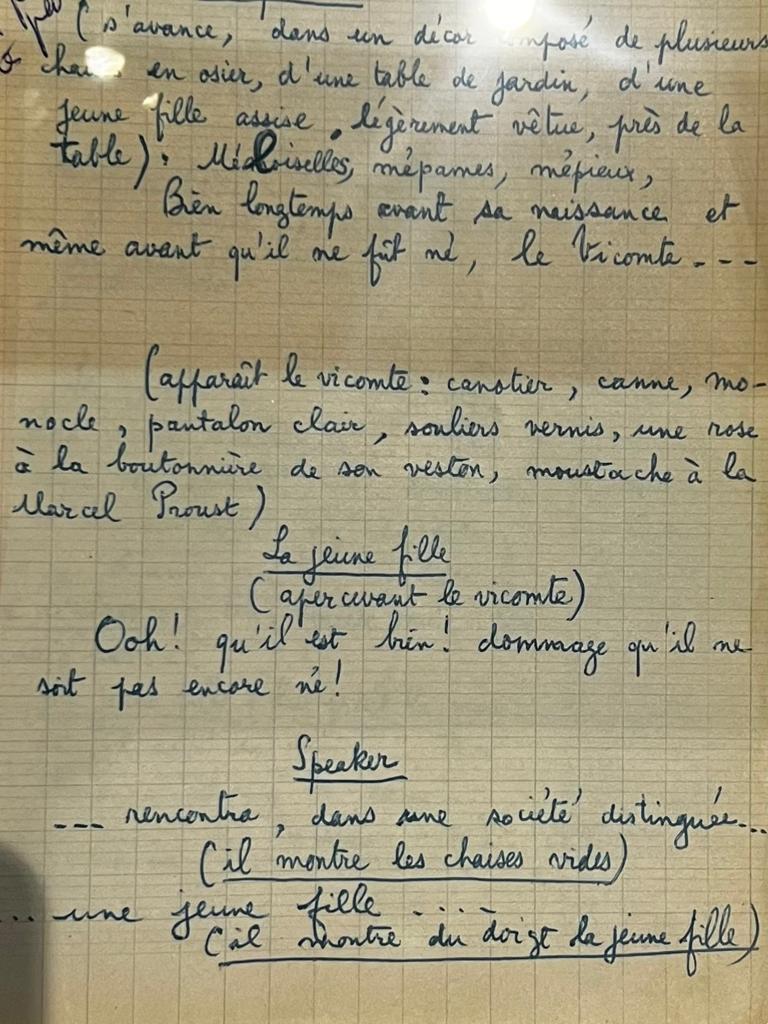 (s'avance, dans un décor composé de plusieurs
chaises en osier, d'une table de jardin, d'une
jeune fille assise, légèrement vêtue, près de la
table) : Médloiselles, mépames, mépieux,
Bien longtemps avant sa naissance et
même avant qu'il ne fût né, le Vicomte - - -
(apparaît le vicomte : canotier, canne, mo-
nocle, pantalon clair, souliers vernis, une rose
à la boutonnière de son veston, moustache à la
Marcel Proust)
La jeune fille
(apercevant le vicomte)
Ooh! qu'il est bien! dommage qu'il ne
soit pas encore né!
Speaker
--- rencontra, dans une société distinguée...
(il montre les chaises vides)
... une jeune fille .....
(il montre du doigt la jeune fille)